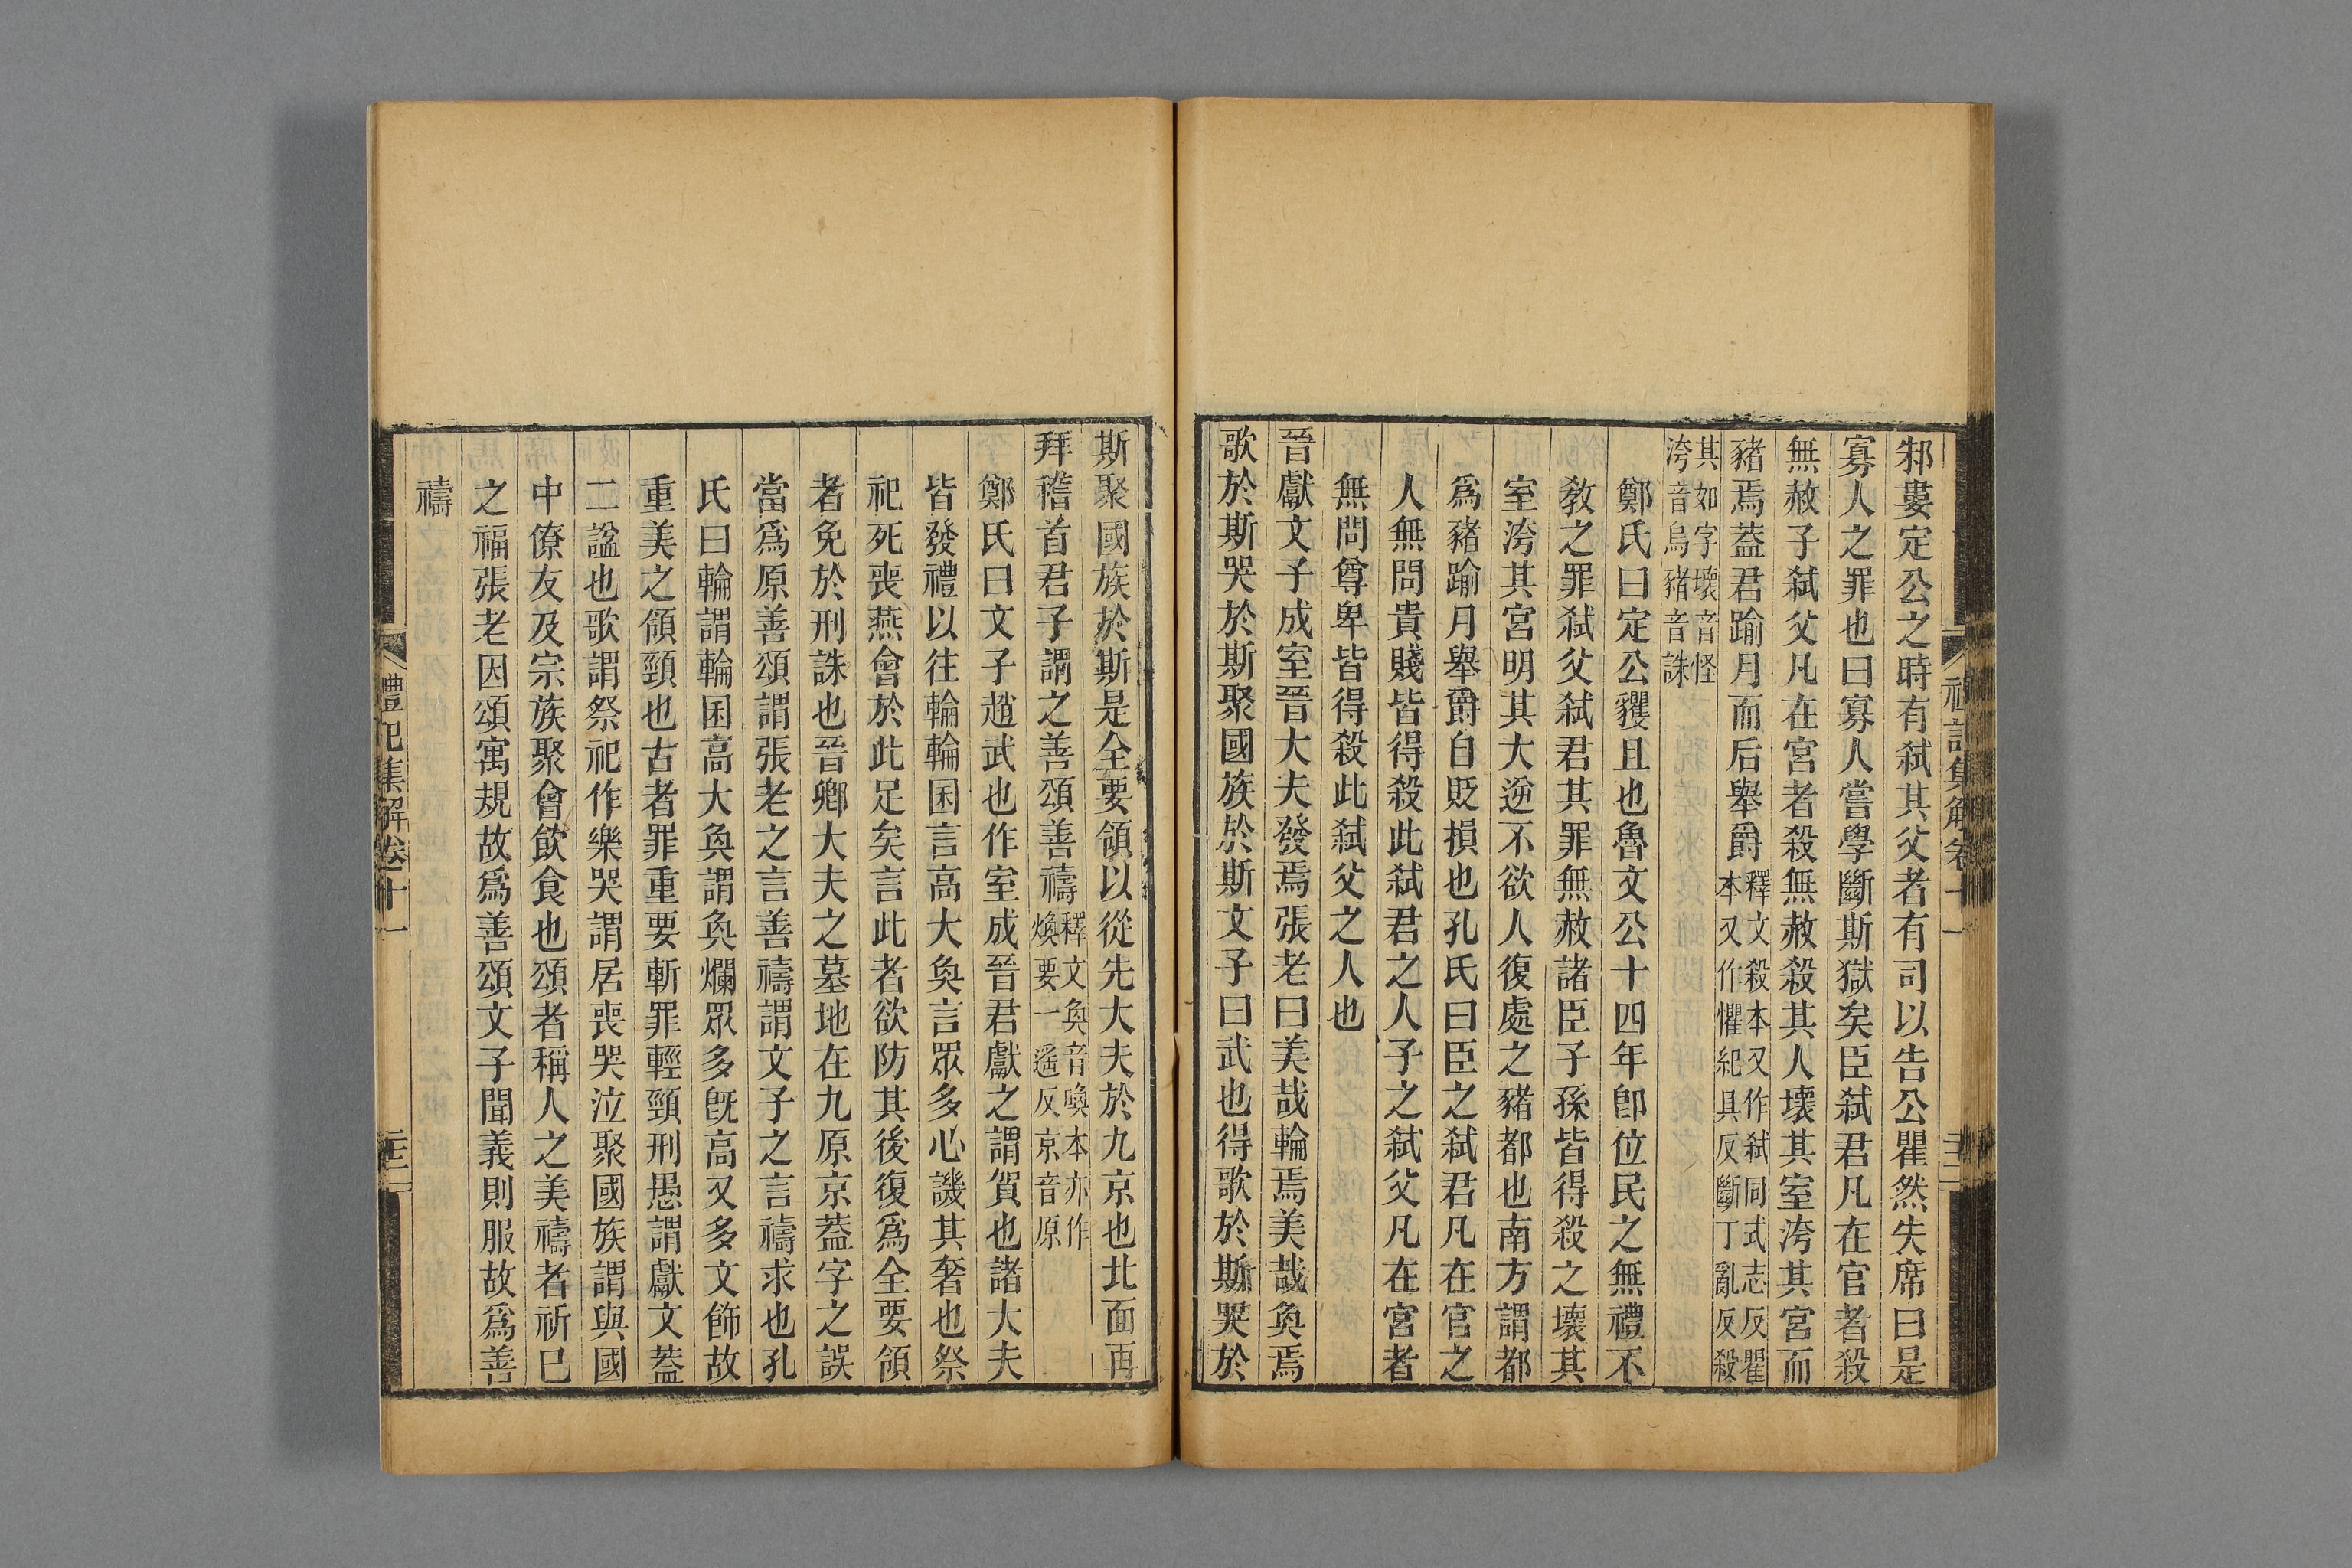 邾婁定公之時有弑其父者有司以告公瞿然失席曰是
寡人之罪也曰寡人嘗學斷斯獄矣臣弑君凡在官者殺
無赦子弑父凡在宮者殺無赦殺其人壞其室洿其宮而
豬焉蓋君踰月而后舉爵釋文殺本又作弑同式志反瞿
本又作懼紀具反斷丁亂反殺
其如字壞音怪
洿音烏豬音誅
鄭氏曰定公貜且也魯文公十四年卽位民之無禮不
敎之罪弑父弑君其罪無赦諸臣子孫皆得殺之壞其
室洿其宮明其大逆不欲人復處之豬都也南方謂都
爲豬踰月舉爵自貶損也孔氏曰臣之弑君凡在官之
人無問貴賤皆得殺此弑君之人子之弑父凡在宮者
無問尊卑皆得殺此弑父之人也
晉獻文子成室晉大夫發焉張老曰美哉輪焉美哉奐焉
歌於斯哭於斯聚國族於斯文子曰武也得歌於斯哭於
斯聚國族於斯是全要領以從先大夫於九京也北面再
拜稽首君子謂之善頌善禱釋文奐音喚本亦作
煥要一遙反京音原
鄭氏曰文子趙武也作室成晉君獻之謂賀也諸大夫
皆發禮以往輪輪囷言高大奐言眾多心譏其奢也祭
祀死喪燕會於此足矣言此者欲防其後復爲全要領
者免於刑誅也晉卿大夫之墓地在九原京蓋字之誤
當爲原善頌謂張老之言善禱謂文子之言禱求也孔
氏曰輪謂輪囷高大奐謂奐爛眾多旣高又多文飾故
重美之領頸也古者罪重要斬罪輕頸刑愚謂獻文蓋
二諡也歌謂祭祀作樂哭謂居喪哭泣聚國族謂與國
中僚友及宗族聚會飲食也頌者稱人之美禱者祈已
之福張老因頌寓規故爲善頌文子聞義則服故爲善
禱
禮記集解卷十一